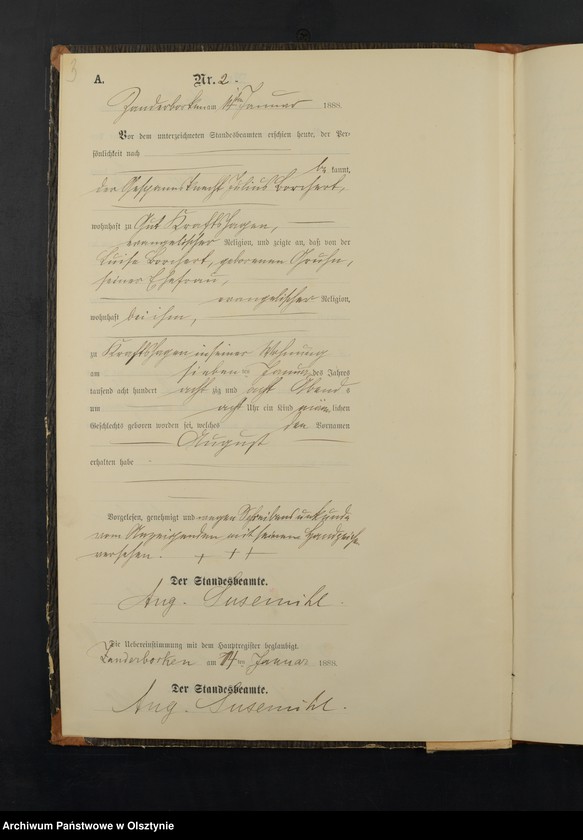 3
A. Nr. 2.
Zanderborken am 14ten Januar 1888.
Vor dem unterzeichneten Standesbeamten erschien heute, der Per-
sönlichkeit nach
be kannt,
der Gespannknecht Julius Borchert,
wohnhaft zu Gut Kraftshagen,
evangelischer Religion, und zeigte an, daß von der
Luise Borchert, geborenen Gruhn,
seiner Ehefrau,
evangelischer Religion,
wohnhaft bei ihm,
zu Kraftshagen in seiner Wohnung
am sieben ten Januar des Jahres
tausend acht hundert acht zig und acht Abends
um acht Uhr ein Kind männ lichen
Geschlechts geboren worden sei, welches den Vornamen
August
erhalten habe
Vorgelesen, genehmigt und wegen Schreibensunkunde
vom Anzeigenden mit seinem Handzeichen
versehen. + + +
Der Standesbeamte.
Aug. Susemihl.
Die Uebereinstimmung mit dem Hauptregister beglaubigt.
Zanderborken am 14 ten Januar 1888.
Der Standesbeamte.
Aug. Susemihl.
Archiwum Państwowe w Olsztynie